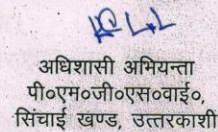 अधिशासी अभियन्ता
पी०एम०जी०एस०वाई०,
सिंचाई खण्ड, उत्तरकाशी